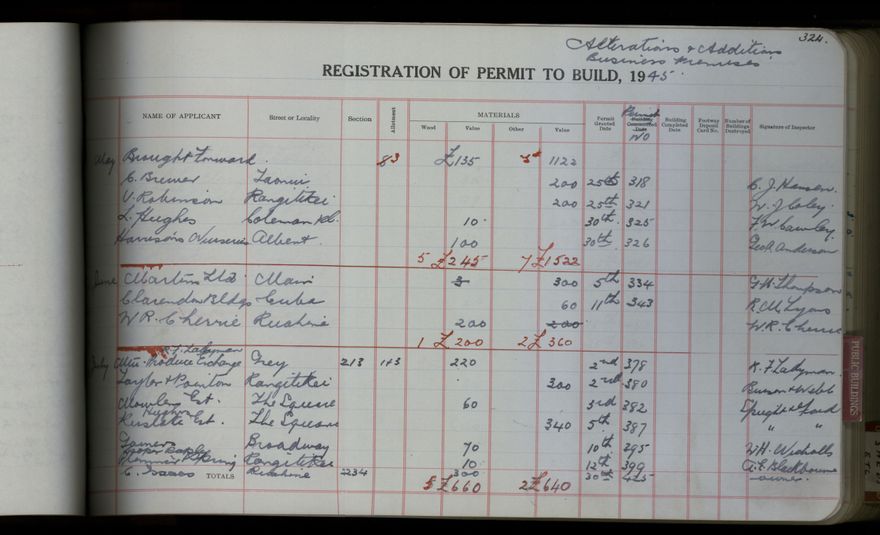 324.
Alterations & Additions
Business Premises
REGISTRATION OF PERMIT TO BUILD, 1945.
NAME OF APPLICANT Street or Locality Section Allotment MATERIALS Wood Value Other Value Permit Granted Date Permit No Building Commenced Date Building Completed Date Footway Deposit Card No. Number of Buildings Destroyed Signature of Inspector
May Brought Forward. £135 1122
C. Brewer Taonui 200 25th 318 C. J. Hansen.
V. Robinson Rangitikei 200 25th 321 W. J. Coley.
L. Hughes Coleman 10 30th 325 F. W. Cawley.
Harrison's Nurseries Albert. 100 30th 326 Geo. A. Anderson
5 £245 7 £1522
June Martins Ltd Main 300 5th 334 Thompson
Clarendon Bldgs Cuba 60 11th 343 R. M. Lyons
W. R. Cherrie Ruahine 200 200 W. R. Cherrie
1 £200 2 £360
K. F. Ladyman
July Produce Exchange Grey 213 1+3 220 2nd 378 K. F. Ladyman.
Taylor & Rangitikei 300 2nd 380
Est. The Square 60 3rd 382
Est. The Square 340 5th 387 " "
Broadway 70 10th 395 W. H. Nicholls
Rangitikei 10 12th 399 Blackbourne
C. Isaacs TOTALS Ruahine 2234 300 30th 425 owner.
5 £660 2 £640
PUBLIC BUILDINGS